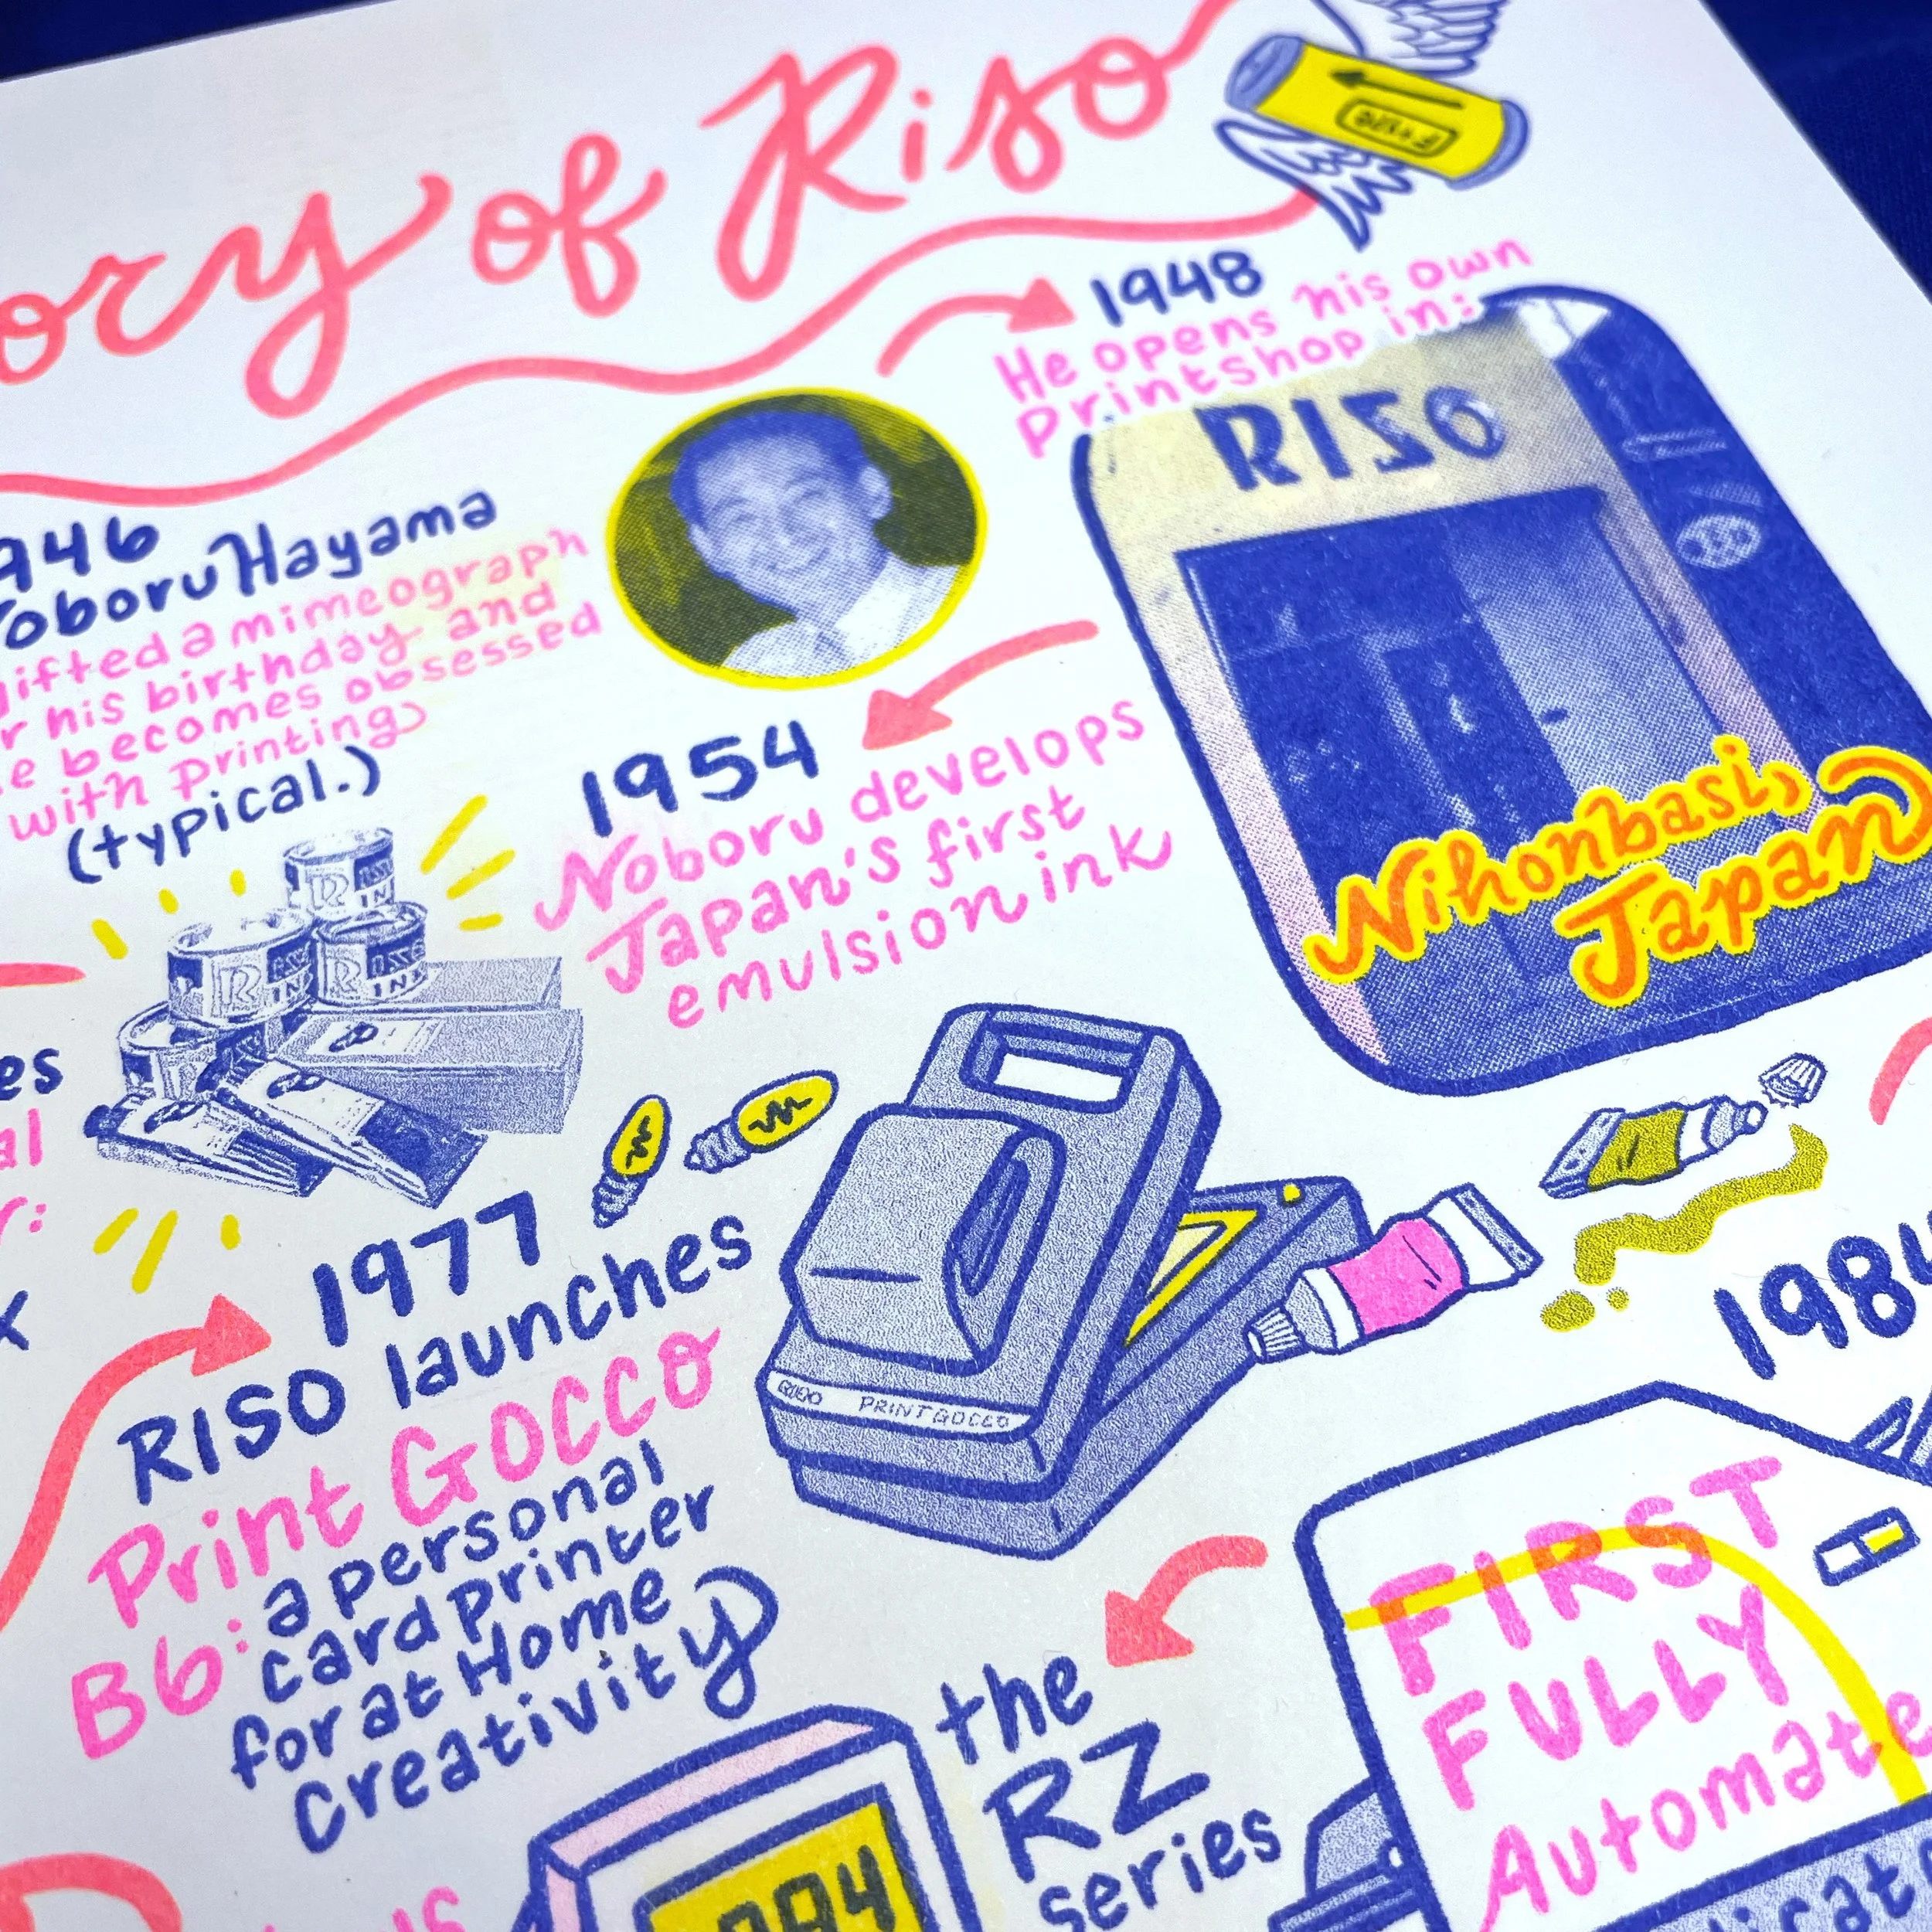 ory of Riso
1948
He opens his own
Printshop in:
RISO
Nihonbasi,
Japan
946
oboru Hayama
gifted a mimeograph
r his birthday and
e becomes obsessed
with printing
(typical.)
1954
Noboru develops
Japan's first
emulsion ink
es
al
r:
x
1977
RISO launches
Print GOCCO
B6: a personal
card printer
for at Home
Creativity
RISO PRINT GOCCO
198
FIRST
FULLY
Automate
the
RZ
series